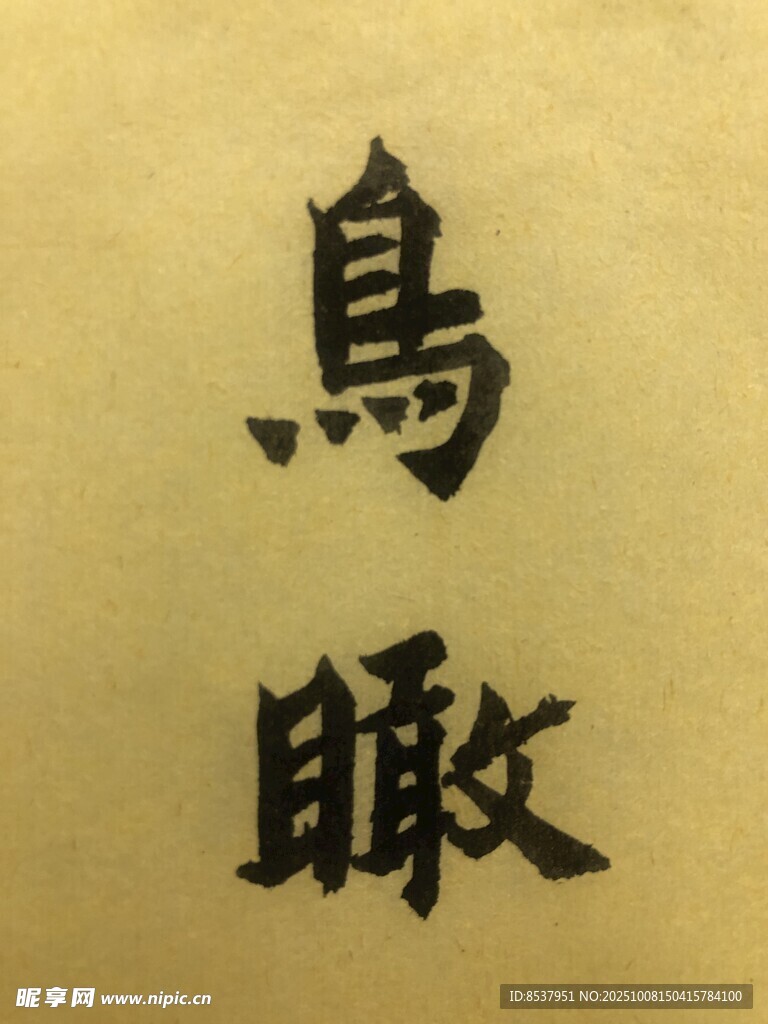 鳥
瞰
昵享网 www.nipic.cn
ID:8537951 NO:20251008150415784100